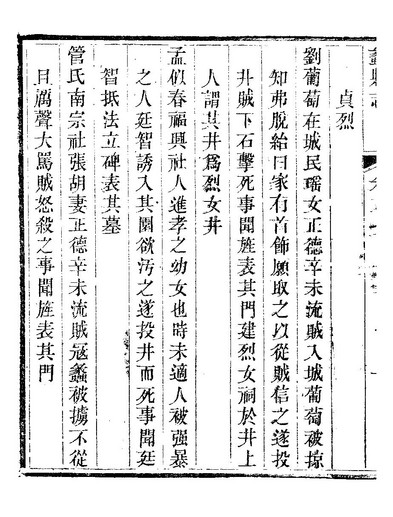 貞烈
劉葡萄在城民瑶女正德辛未流賊入城葡萄被掠
知弗脫紿曰家有首飾願取之以從賊信之遂投
井賊下石擊死事聞旌表其門建烈女祠於井上
人謂其井爲烈女井
孟似春福興社人進孝之幼女也時未適人被强暴
之人廷智誘入其園欲汚之遂投井而死事聞廷
智抵法立碑表其墓
管氏南宗社張胡妻正德辛未流賊寇蠡被擄不從
且厲聲大罵賊怒殺之事聞旌表其門